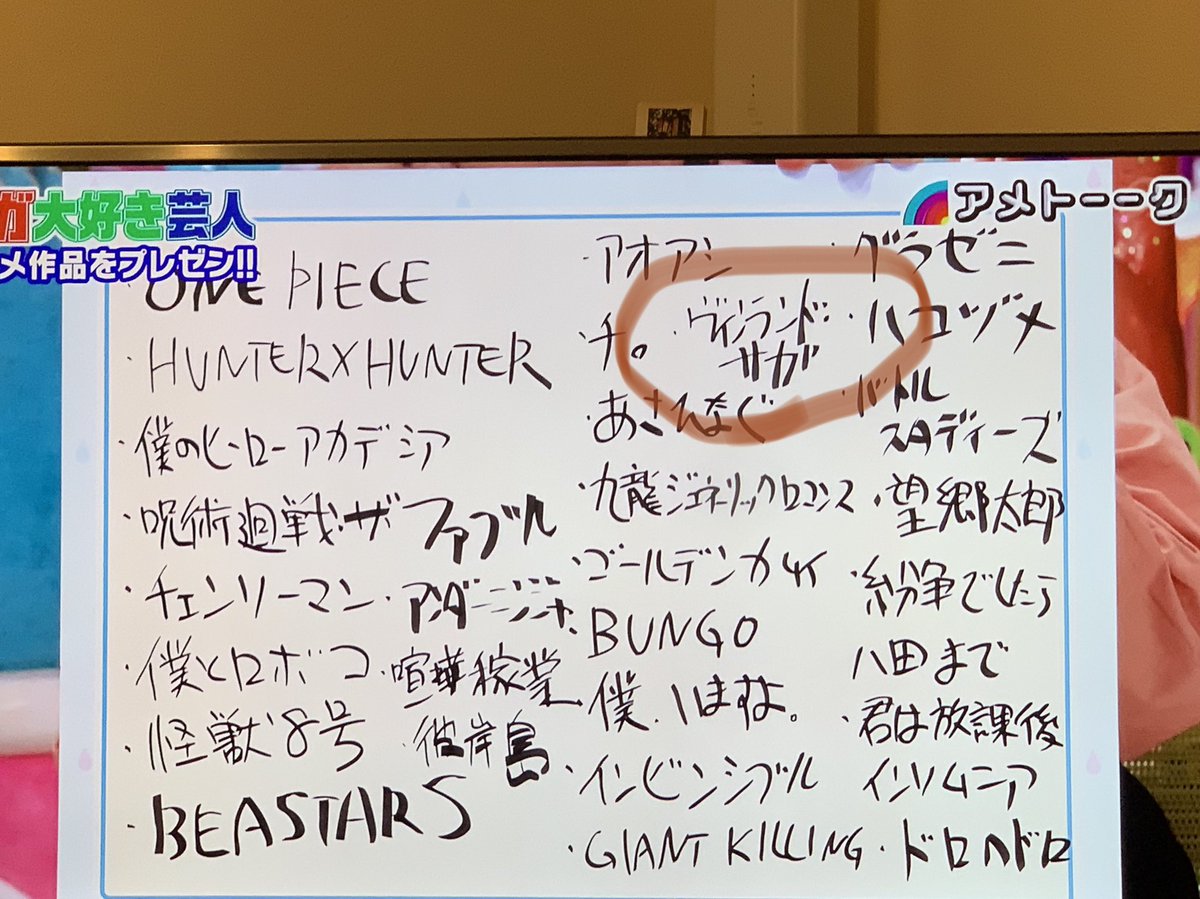 ガ大好き芸人
メ作品をプレゼン!!
アメトーーク
ONE PIECE
・HUNTER×HUNTER
・僕のヒーローアカデミア
・呪術廻戦・ザ・ファブル
・チェンソーマン・アンダーニンジャ
・僕とロボコ・喧嘩稼業
・怪獣8号・彼岸島
・BEASTARS
・アオアシ
・チ。・ヴィンランド
サガ
・あさひなぐ
・九龍ジェネリックロマンス
・ゴールデンカムイ
・BUNGO
・僕、いますよ。
・インビンシブル
・GIANT KILLING
・グラゼニ
・ハコヅメ
・バトル
スタディーズ
・望郷太郎
・紛争でしたら
八田まで
・君は放課後
インソムニア
・ドロヘドロ